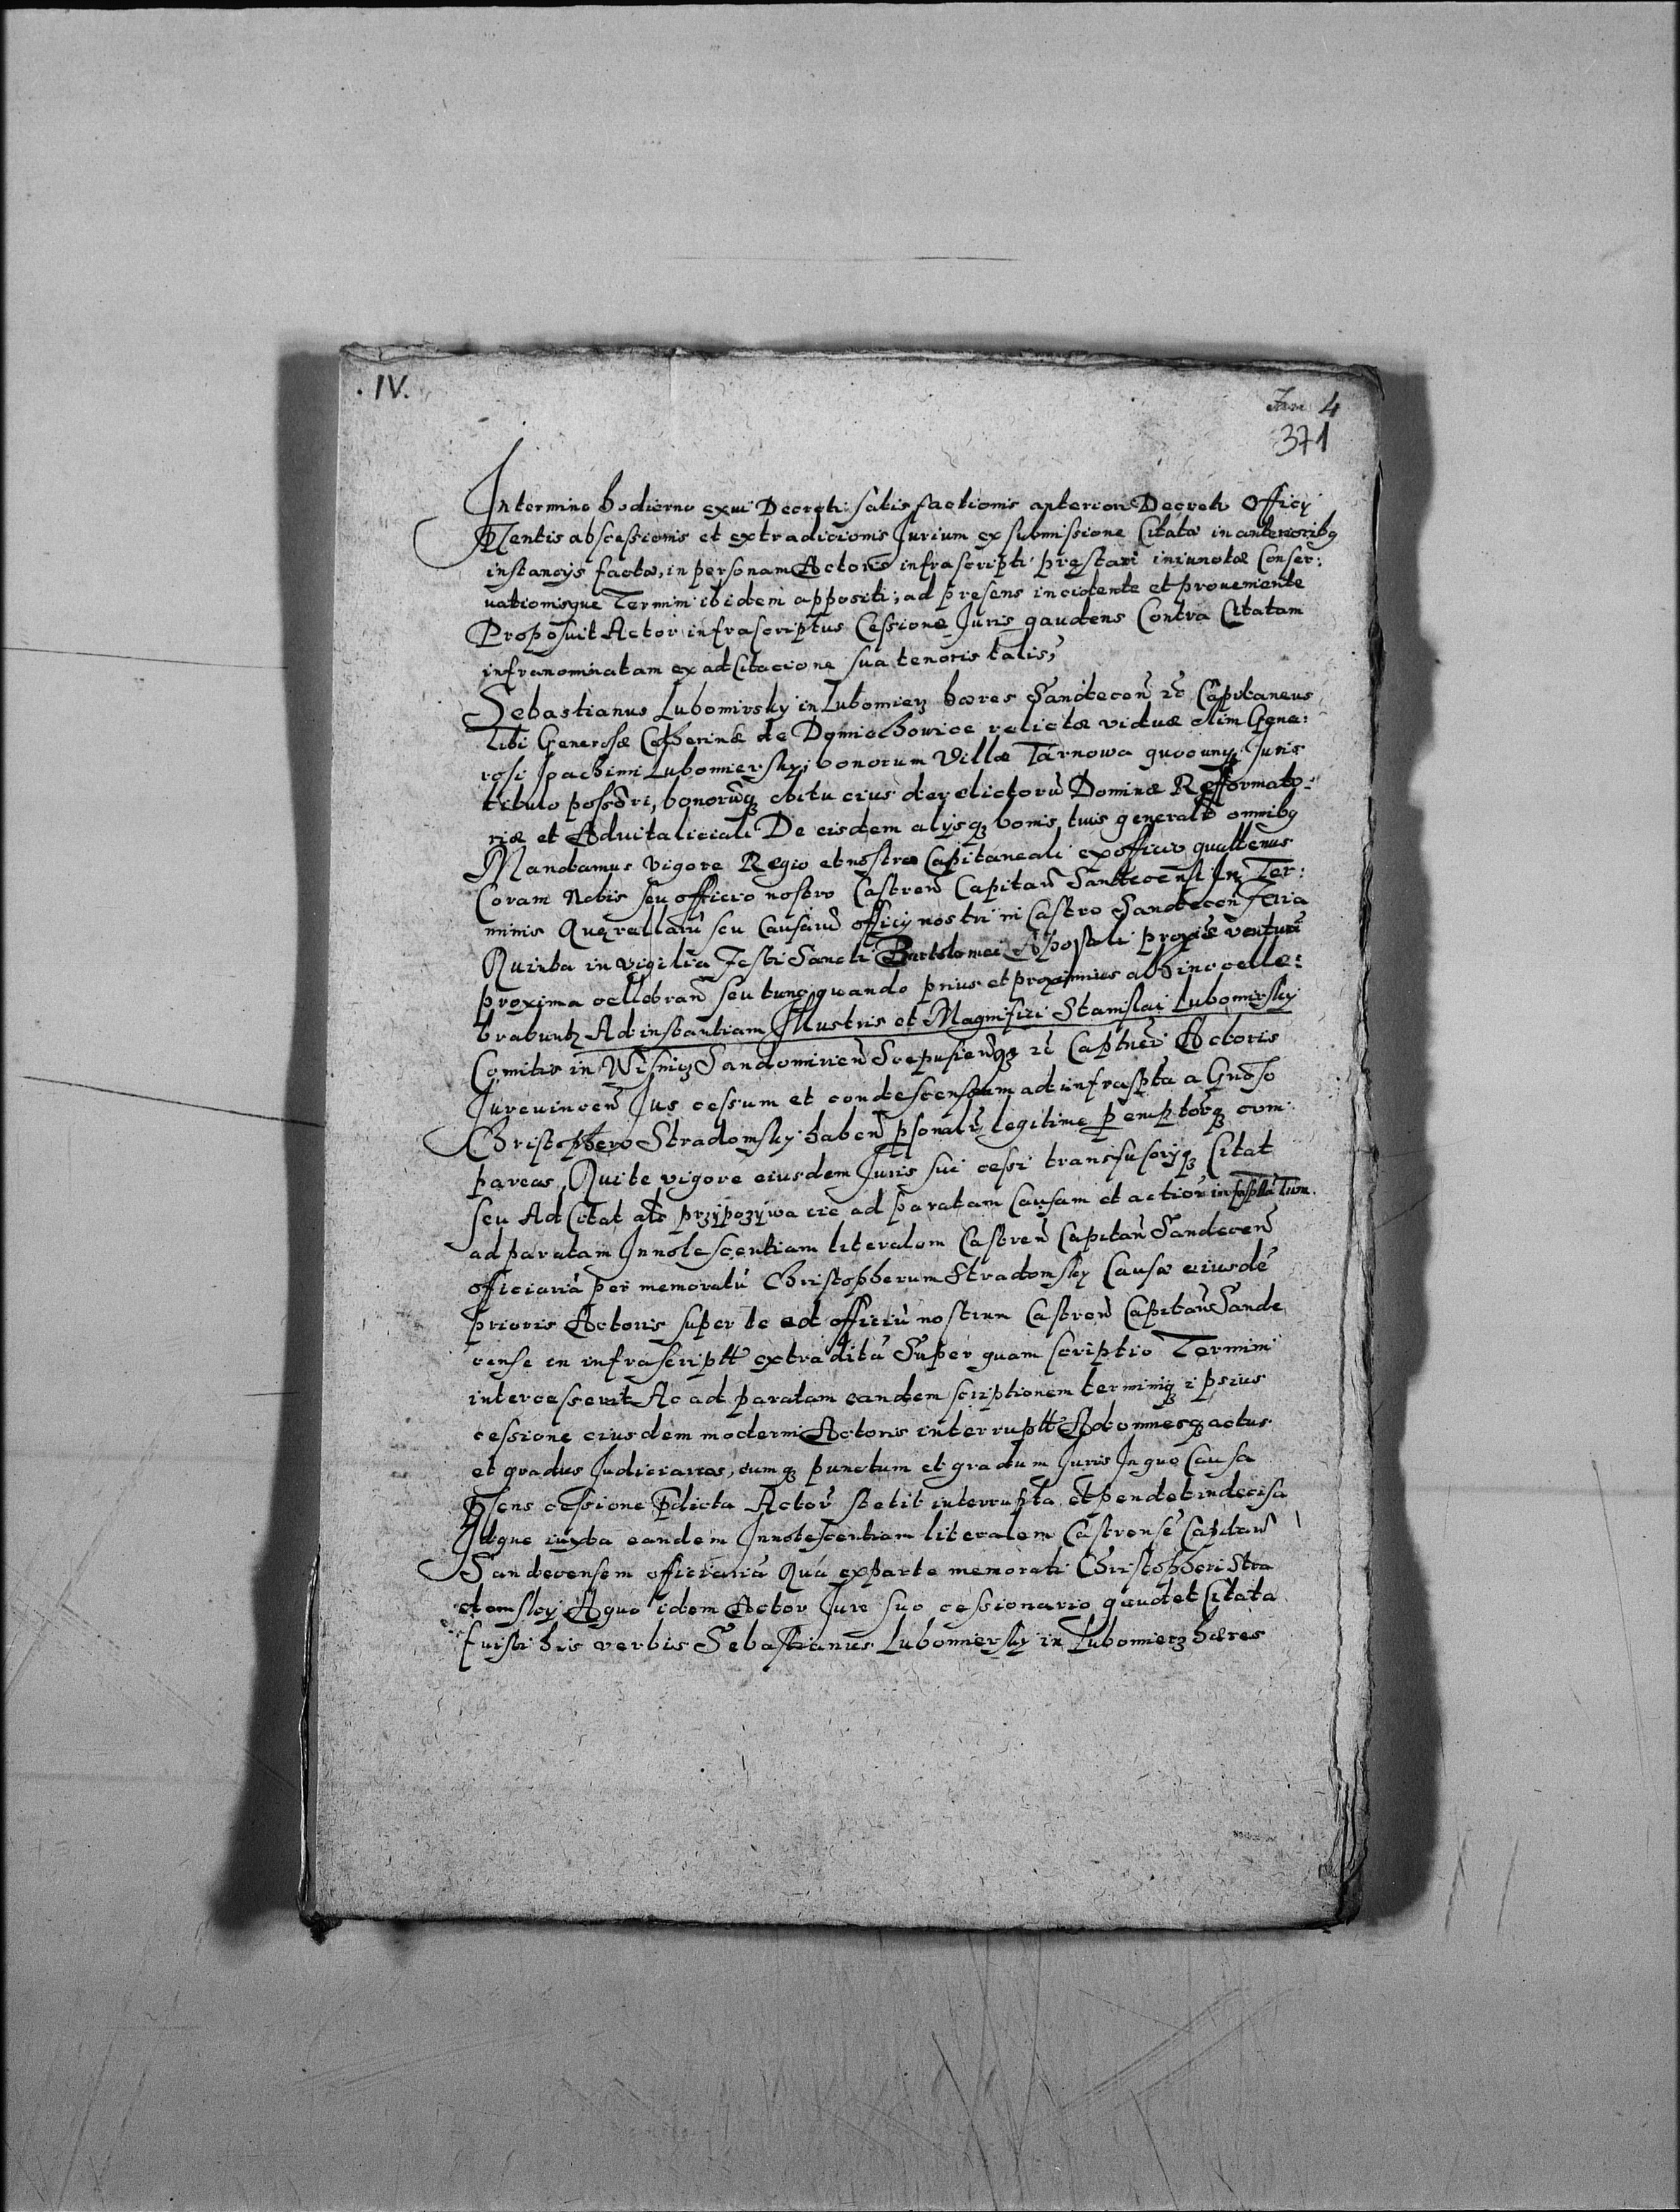 . IV.
4
371
In termino hodierno ex vi Decreti satisfactionis anterioris Decreti Officij
Pñtis abscessionis et extradicionis Jurium ex submissione Citatæ in anterioribq
instancijs factæ, in personam Actoris infrascripti prestari iniunctæ Conser:
uationisque Termini ibidem appositi, ad presens incidente et proueniente
Proposuit Actor infrascriptus Cessione Juris gaudens Contra Citatam
infranominatam ex adCitacione sua tenoris talis,
Sebastianus Lubomirsky in Lubomierz hæres Sandecen̄ ꝛc Capitaneus
Tibi Generosæ Catherinæ de Domiechowice relictæ viduæ olim Gene:
rosi Joachimi Lubomiersky, bonorum Villæ Tarnowa quocunq Juris
titulo possōri, bonorūq obitu eius derelictorū Dominæ Refformato:
riæ et Aduitaliciali De eisdem alijsq bonis tuis generalr̄ omnibq
Mandamus vigore Regio et nostro Capitaneali ex officio quattenus
Coram Nobis seu officio nostro Castren̄ Capitan̄ Sandecensi In Ter:
minis Querellarū seu Causarū officij nostri in Castro Sandecen̄ Feria
Quinta in vigilia Festi Sancti Bartolomei Apostoli proxie venturi
proxima cellebran̄ seu tunc quando prius et proximius ab hinc celle:
brabuntꝛ Ad instantiam Illustris et Magnifici Stanislai Lubomirsky
Comitis in Wisnicz Sandomirien̄ Scepusien̄qꝫ ꝛc Captnei Actoris
Jureuincen̄ Jus cessum et condescensum ad infrasp̄ta a Gnōso
Christophero Stradomsky haben̄ psonalr̄ legitime pemptorq com
pareas, Qui te vigore eiusdem Juris sui cessi transfusorijq Citat
seu Ad Citat als przÿpozÿwa cie ad paratam Causam et action̄ infrasp̄tta Tum
ad paratam Innotescentiam literalem Castren̄ Capitan̄ Sandecen̄
officiariā per memoratū Christopherum Stradomsky Causæ eiusdē
prioris Actoris super te ad officiū nostrum Castren̄ Capitan̄ Sande
cense in infrascriptt extraditā Super quam scriptio Termini
intercesserit Ac ad paratam eandem scriptionem terminiq ipsius
cessione eiusdem moderni Actoris interruptt Ad omnesq actus
et gradus Judiciarios, eumq punctum et gradum Juris In quo Causa
Pñsens cessione Pdicta Actor̄ stetit interrupta et pendet indecisa
Idque iuxta eandem Innotescentiam literalem Castrensē Capitan̄
Sandecensem officiariā Quā ex parte memorati Christopheri Stra
domsky A quo idem Actor Jure suo cessionario gaudet Citata
fuisti his verbis Sebastianus Lubomiersky in Lubomierz hæres